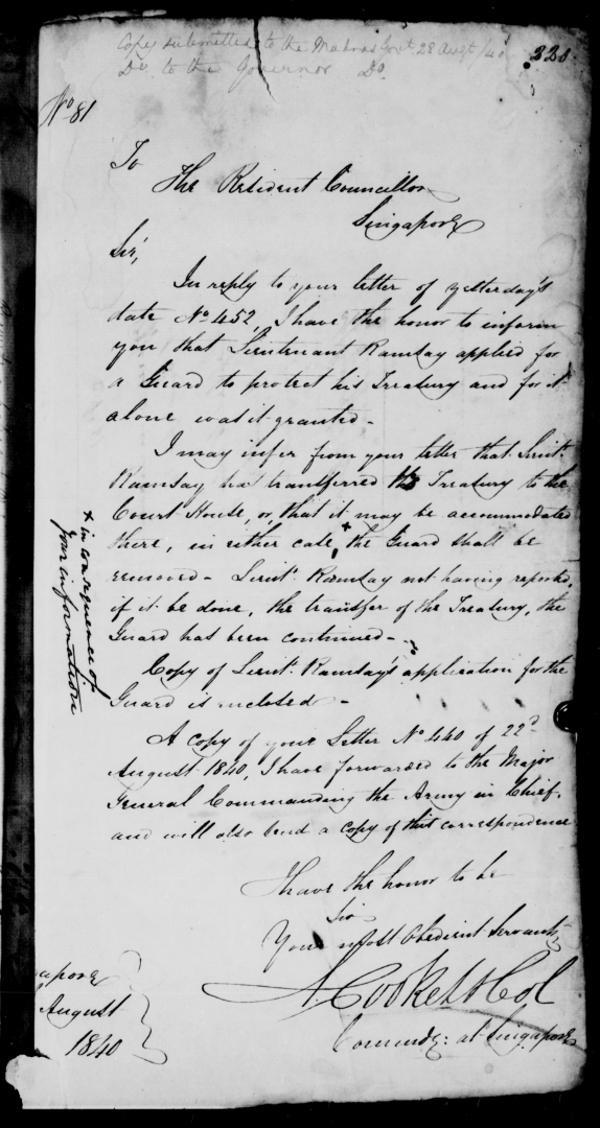 Copy submitted to the Madras Govt. 28 Augt /40
Do. to the Governor Do.
No 81
To
The Resident Councillor
Singapore
Sir,
In reply to your letter of yesterday's
date No 452, I have the honor to inform
you that Lieutenant Ramsay applied for
a Guard to protect his Treasury and for it
alone was it granted -
I may infer from your letter that Lieut.
Ramsay has transferred the Treasury to the
Court House, or, that it may be accommodated
there, in either case, x the Guard shall be
removed - Lieut. Ramsay not having reported,
if it be done, the transfer of the Treasury, the
Guard has been continued -
x in consequence of
your information
Copy of Lieut. Ramsay's application for the
Guard is enclosed -
A copy of your Letter No 440 of 22d
August 1840, I have forwarded to the Major
General Commanding the Army in Chief,
and will also send a copy of this correspondence
I have the honor to be
Sir
Your most Obedient Servant
Cooke Lt Col
Commdg: at Singapore
apore
August
1840